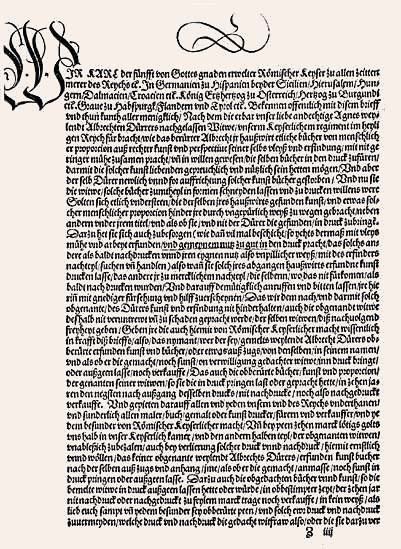 WIR KARL der fünfft von Gottes gnaden erwelter Römischer Keyser zu allen zeitten
merer des Reychs ꝛc. In Germanien zu Hispanien beyder Sicilien/ Hierusalem/ Hun
gern/ Dalmacien/ Croacien ꝛc. König Ertzhertzog zu Osterreich/ Hertzog zu Burgundi
ꝛc. Graue zu Habspurg/ Flandern vnd Tyrol ꝛc. Bekennen offenlich mit disem brieff
vnd thun kunth aller menigklich/ Nach dem die erbar vnser liebe andechtige Agnes weylendt
Albrechten Dürers nachgelassen Witwe/ vnserm Keyserlichem regiment im heyli
gen Reych für bracht wie das berürter Albrecht jr haußwirt etliche bücher von menschlich
er proportion auß rechter kunst vnd perspectiue seiner selbs vleyß vnd erfindung/ mit nit ge
ringer mühe zusamen pracht/ vnd in willen gewesen/ die selben bücher in den druck zufüren/
darmit die solcher kunst liebenden gepreuchlich vnd nützlich sein hetten mögen/ Vnd aber
der selb Dürer newlich vnnd vor auffrichtung solcher kunst bücher gestorben/ Vnd nun sie
die witwe/ solche bücher zumtheyl in formen schneyden lassen vnnd zu drucken willens were
Solten sich etlich vndersteen/ die derselben jres haußwirts gefunden kunst/ vnd etwas sol
cher menschlicher proportion hinder jr durch vngepürlich weyß zu wegen gebracht/ neben
andern vnder jrem titel/ vnd als ob sie/ vnd nit der Dürer die gefunden/ in druck zubringen
Darzu het sie sich auch zubesorgen/ wie dan vil mal beschicht/ so yehts dermaß mit vleyß
mühe vnd arbeyt erfunden/ vnd gemeynem nutz zu gut in den druck pracht/ das solchs an
dere als baldt nachdrucken vnnd jren eygnen nutz also vnpillicher weyß/ mit des erfinders
nachteyl suchen vnd handlen/
drucken lasse/ das andere jr zu mercklichem nachteyl/ die selbenn/
baldt nach drucken wurden/ Vnd darauff demütigklich anruffen vnd bitten lassen/
mit gnediger fürsehung vnd hilff zuerscheynen/ Das wir dem nach/ vnd darmit solch
obgenante/ des Dürers kunst vnd erfindung nit hinderhalten/ auch die obgenant witwe
deßhalb nit verunterwt vnd zu schaden gepracht werde/ der selben witwen/ diß nachuolgend
freyheyt geben/ Geben jre die auch hiemit von Römischer Keyserlicher macht wissenlich
in krafft diß brieffs/ also/ das nymant/ wer der sey/ gemelts weylendt Albrecht Dürers ob
berürte erfunden kunst vnd bücher/ oder etwas auß zugs/ von denselben/ in seinem namen/
vnd als ob er die gemacht/ noch sunst/ on verwilligung gedachter witwe/ inn druck bringen/
oder außgeen lasse/ noch verkauffe/ Das auch die obberürte bücher/ kunst vnd proportion/
der genanten seiner witwen/ so sie die in druck pringen last oder gepracht hette/ in zehen ja
ren den negsten nach außgang desselben drucks/ nit nachdruck/ noch also nachgedruckt
verkauffe. Vnd gepieten darauff allen vnd yeden vnsern vnd des Reychs vnderthanen/
vnd sunderlich allen maler/ buch/ genalt oder kunst drucker/ fürern vnd verkauffer/ vnd ye
dem besunder von Römischer Keyserlicher macht/ Vnd bey peen zehen marck lötigs golts
vns halb in vnser Keyserlich kamer/ vnd den andern halben teyl/ der obgnanten witwen/
vnableßlich zubezalen/ auch bey verlierung solcher druck vnnd nachdruck/ hiemit ernstlich
vnnd wöllen/ das keiner obgenant weylendt Albrechts Dürers/ erfunden kunst bücher
nach der selben auß zugs vnd anhang/ jme/ als ob er die gemacht/ anmasse/ noch sunst in
druck pringen oder außgeen lasse. Darzu auch die obgedachten bücher vnnd kunst/ so die
bemelte witwe in druck außgeen lassen hette oder würde/ in obbestimpter zeyt/ der zehen jar
nit nachdruck oder nachgedruckt zu seylem marck trage noch verkauffe/ in kein weyß/ als
lieb euch sampt vnd yedem besunder sey obberürte peen/ vnd solch ewr druck vnd nachdruck
zuuermeyden/ welche druck vnd nachdruck die gedacht witfraw also/ oder die sie darzu ver